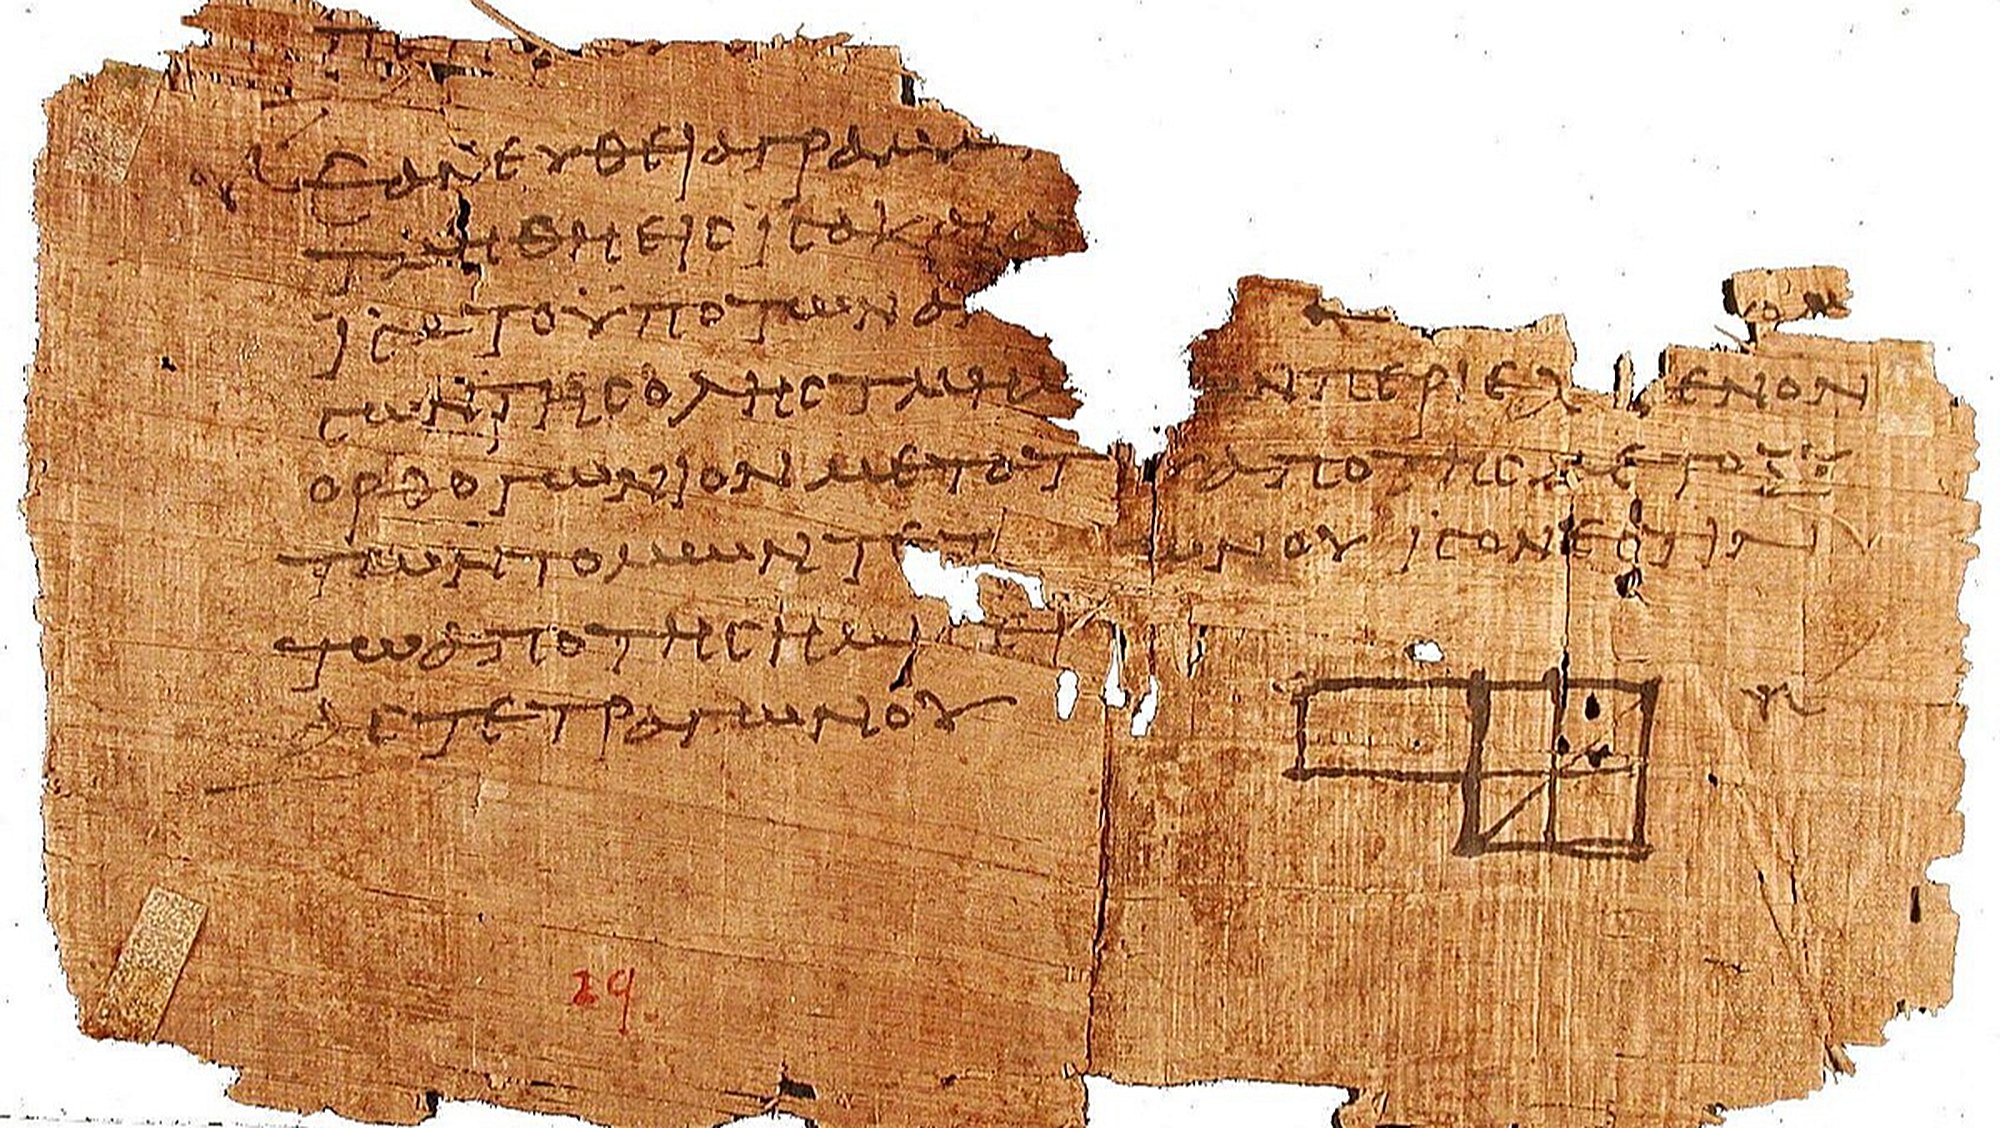 ΕΑΝ ΕΥΘΕΙΑ ΓΡΑΜΜ
ΤΜΗΘΗ ΕΙϹ ΙϹΑ ΚΑΙ Α
ΙϹΑ ΤΟ ΥΠΟ ΤΩΝ ΑΝ
ϹΩΝ ΤΗϹ ΟΛΗϹ ΤΜΗΜ ΩΝ ΠΕΡΙΕΧ ΕΝΟΝ
ΟΡΘΟΓΩΝΙΟΝ ΜΕΤΑ ΤΟΥ ΑΠΟ ΤΗϹ ΜΕΤΟΞΥ
ΤΩΝ ΤΟΜΩΝ ΤΕΤ ΩΝΟΥ ΙϹΟΝ ΕϹΤΙΝ
ΤΩ ΑΠΟ ΤΗϹ ΗΜΙϹΕΙ
ΑϹ ΤΕΤΡΑΓΩΝΟΥ
29.